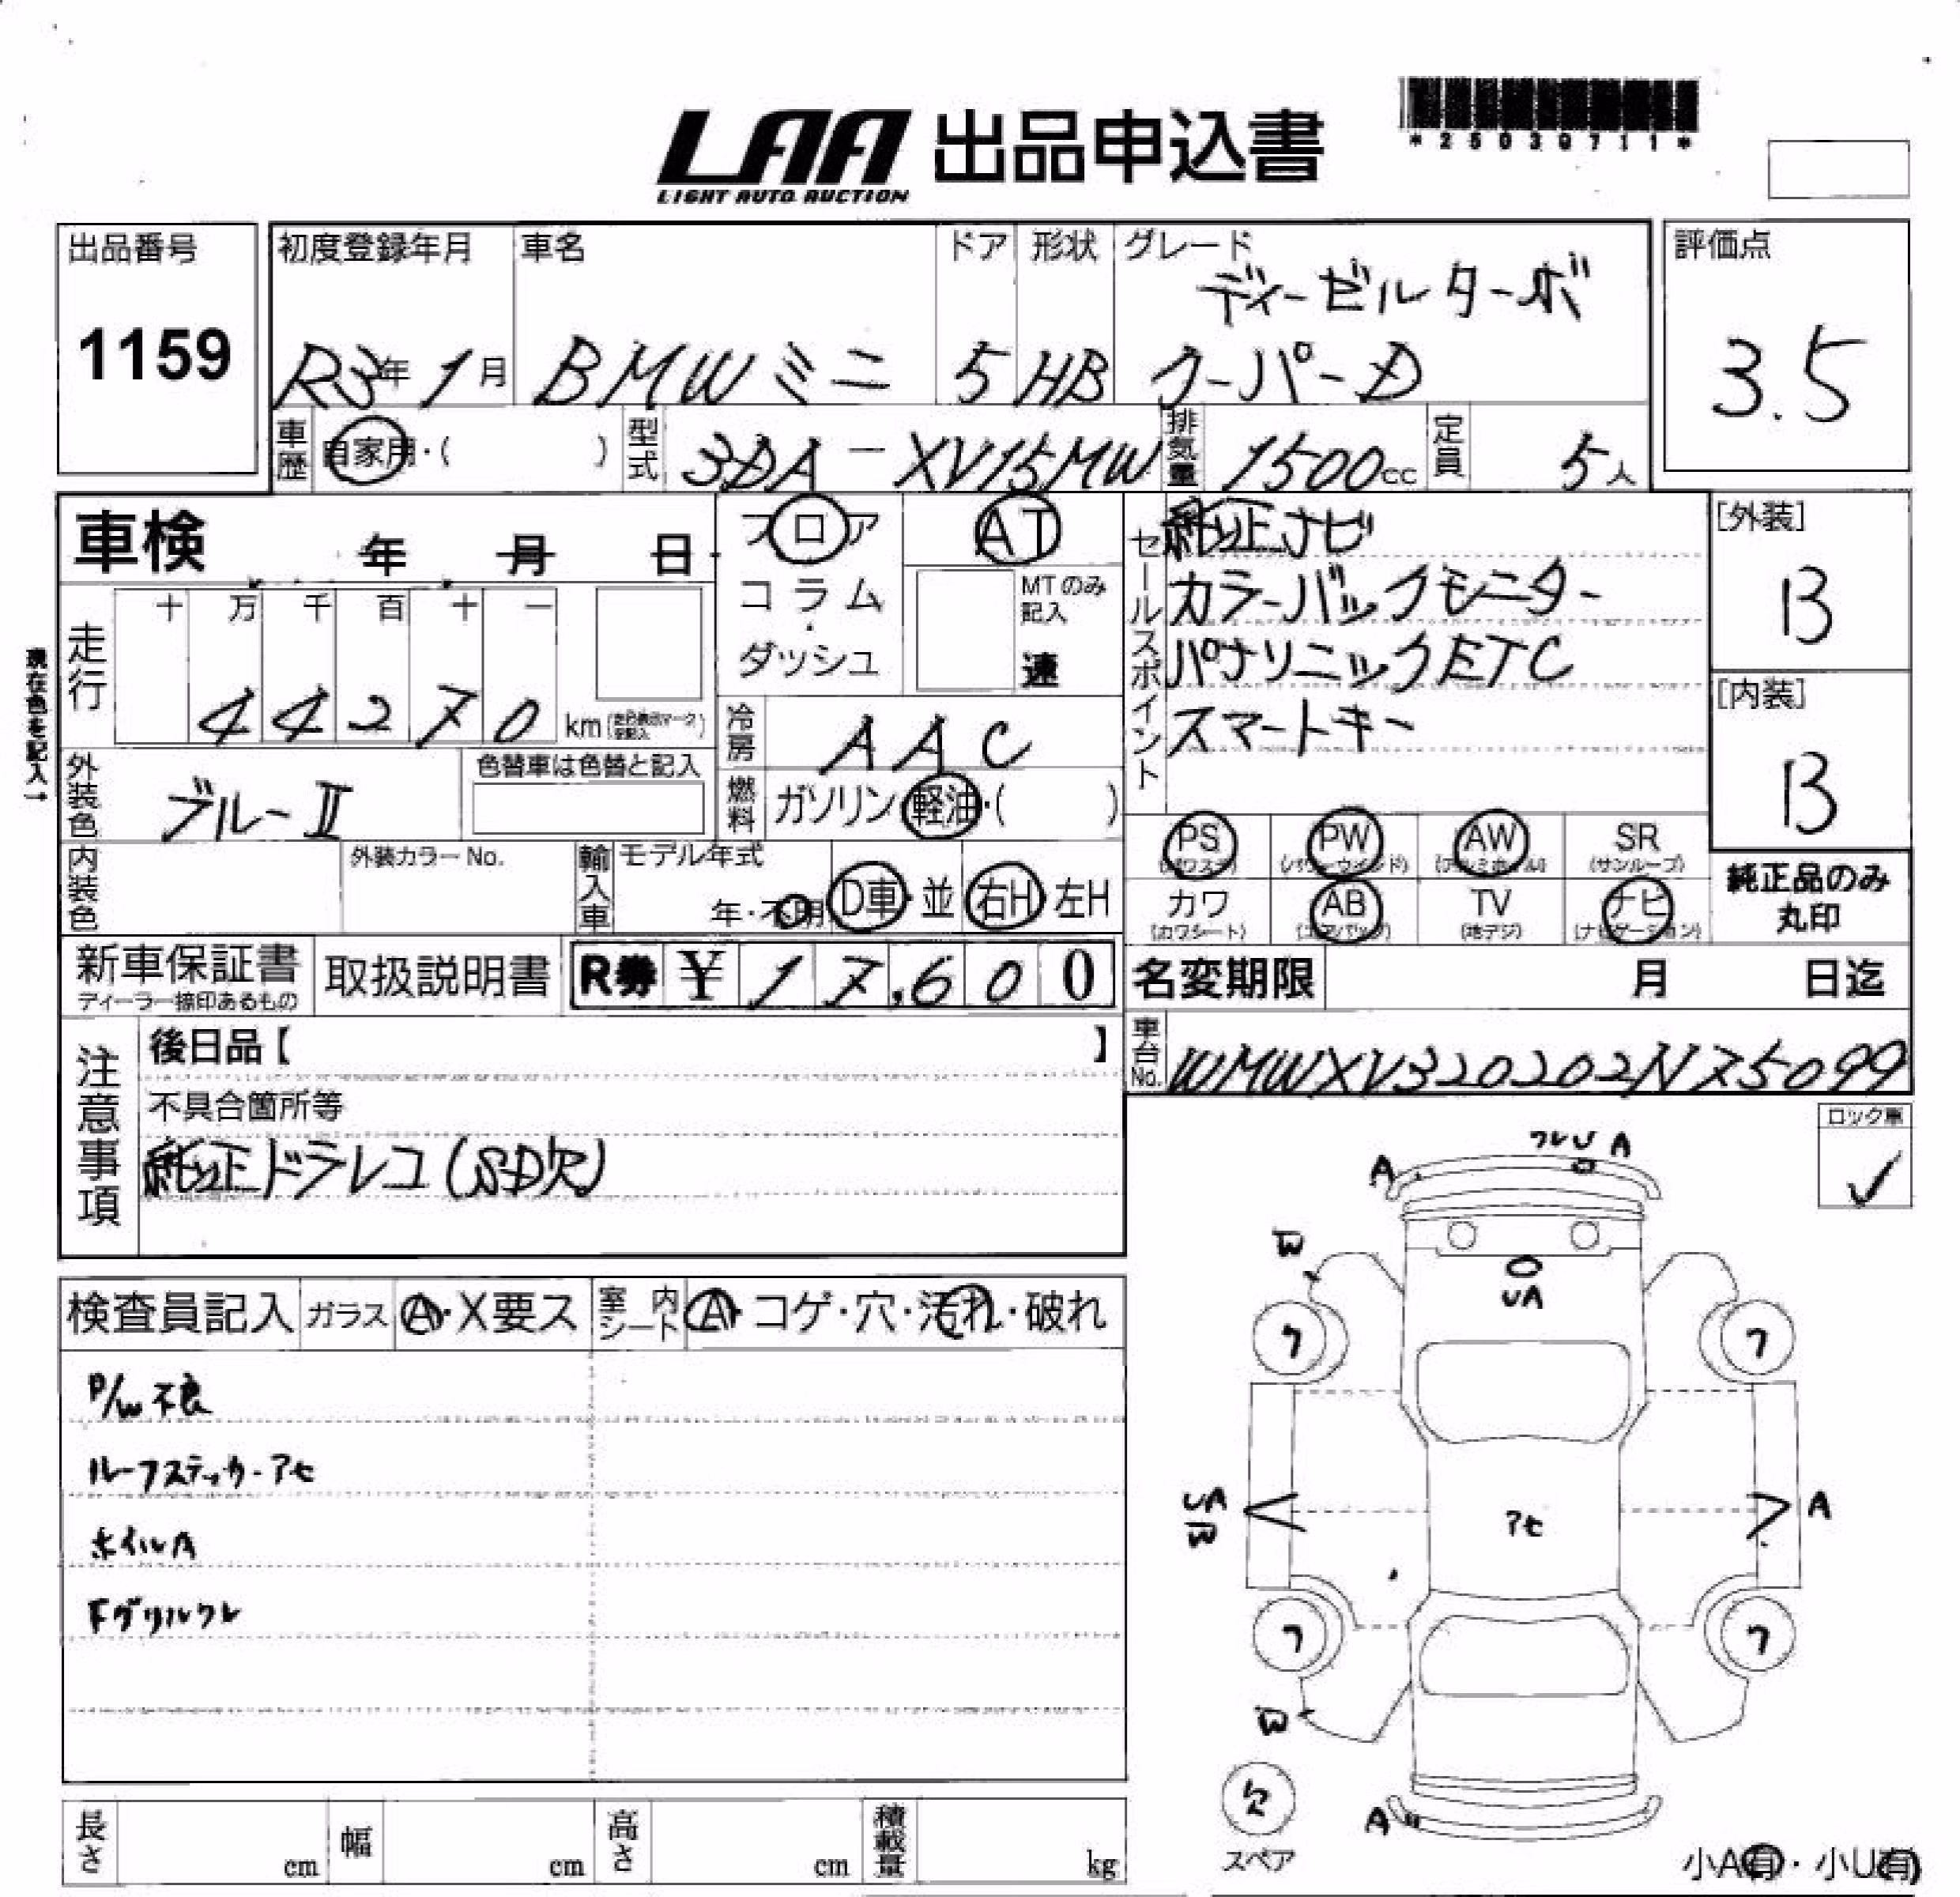 LAA 出品申込書
LIGHT AUTO AUCTION
*25030711*
出品番号
1159
初度登録年月
R3年1月
車名
BMWミニ
ドア
5
形状
HB
グレード
ディーゼルターボ
クーパーD
評価点
3.5
車歴
自家用・( )
型式
3DA-XV15MW
排気量
1500cc
定員
5人
車検 年 月 日
フロア
コラム
ダッシュ
AT
MTのみ記入
速
セールスポイント
純正ナビ
カラーバックモニター
パナソニックETC
スマートキー
[外装]
B
[内装]
B
現在色を記入→
走行
十 万 千 百 十 一
44270 km
冷房
AAC
外装色
ブルーII
色替車は色替と記入
燃料
ガソリン・軽油・( )
PS PW AW SR
(パワステ) (パワーウインド) (アルミホイル) (サンルーフ)
カワ AB TV ナビ
(カワシート) (エアバッグ) (地デジ) (ナビゲーション)
純正品のみ
丸印
内装色
外装カラーNo.
輸入車
モデル年式
年・不明
D車・並
右H・左H
新車保証書
ディーラー捺印あるもの
取扱説明書
R券 ¥17,600
名変期限 月 日迄
車台No.
WMWXV320202N75099
注意事項
後日品【 】
不具合箇所等
純正ドラレコ(SD欠)
ロック車
✓
検査員記入
ガラス
A・X要ス
室内シート
A・コゲ・穴・汚れ・破れ
P/W不良
ルーフステッカーアセ
ホイルA
Fグリルワレ
A
ワレU A
W
UA
ワ ワ
UA
W
アセ
A
ワ ワ
W
欠
スペア
A
小A有・小U有
長さ cm
幅 cm
高さ cm
積載量 kg